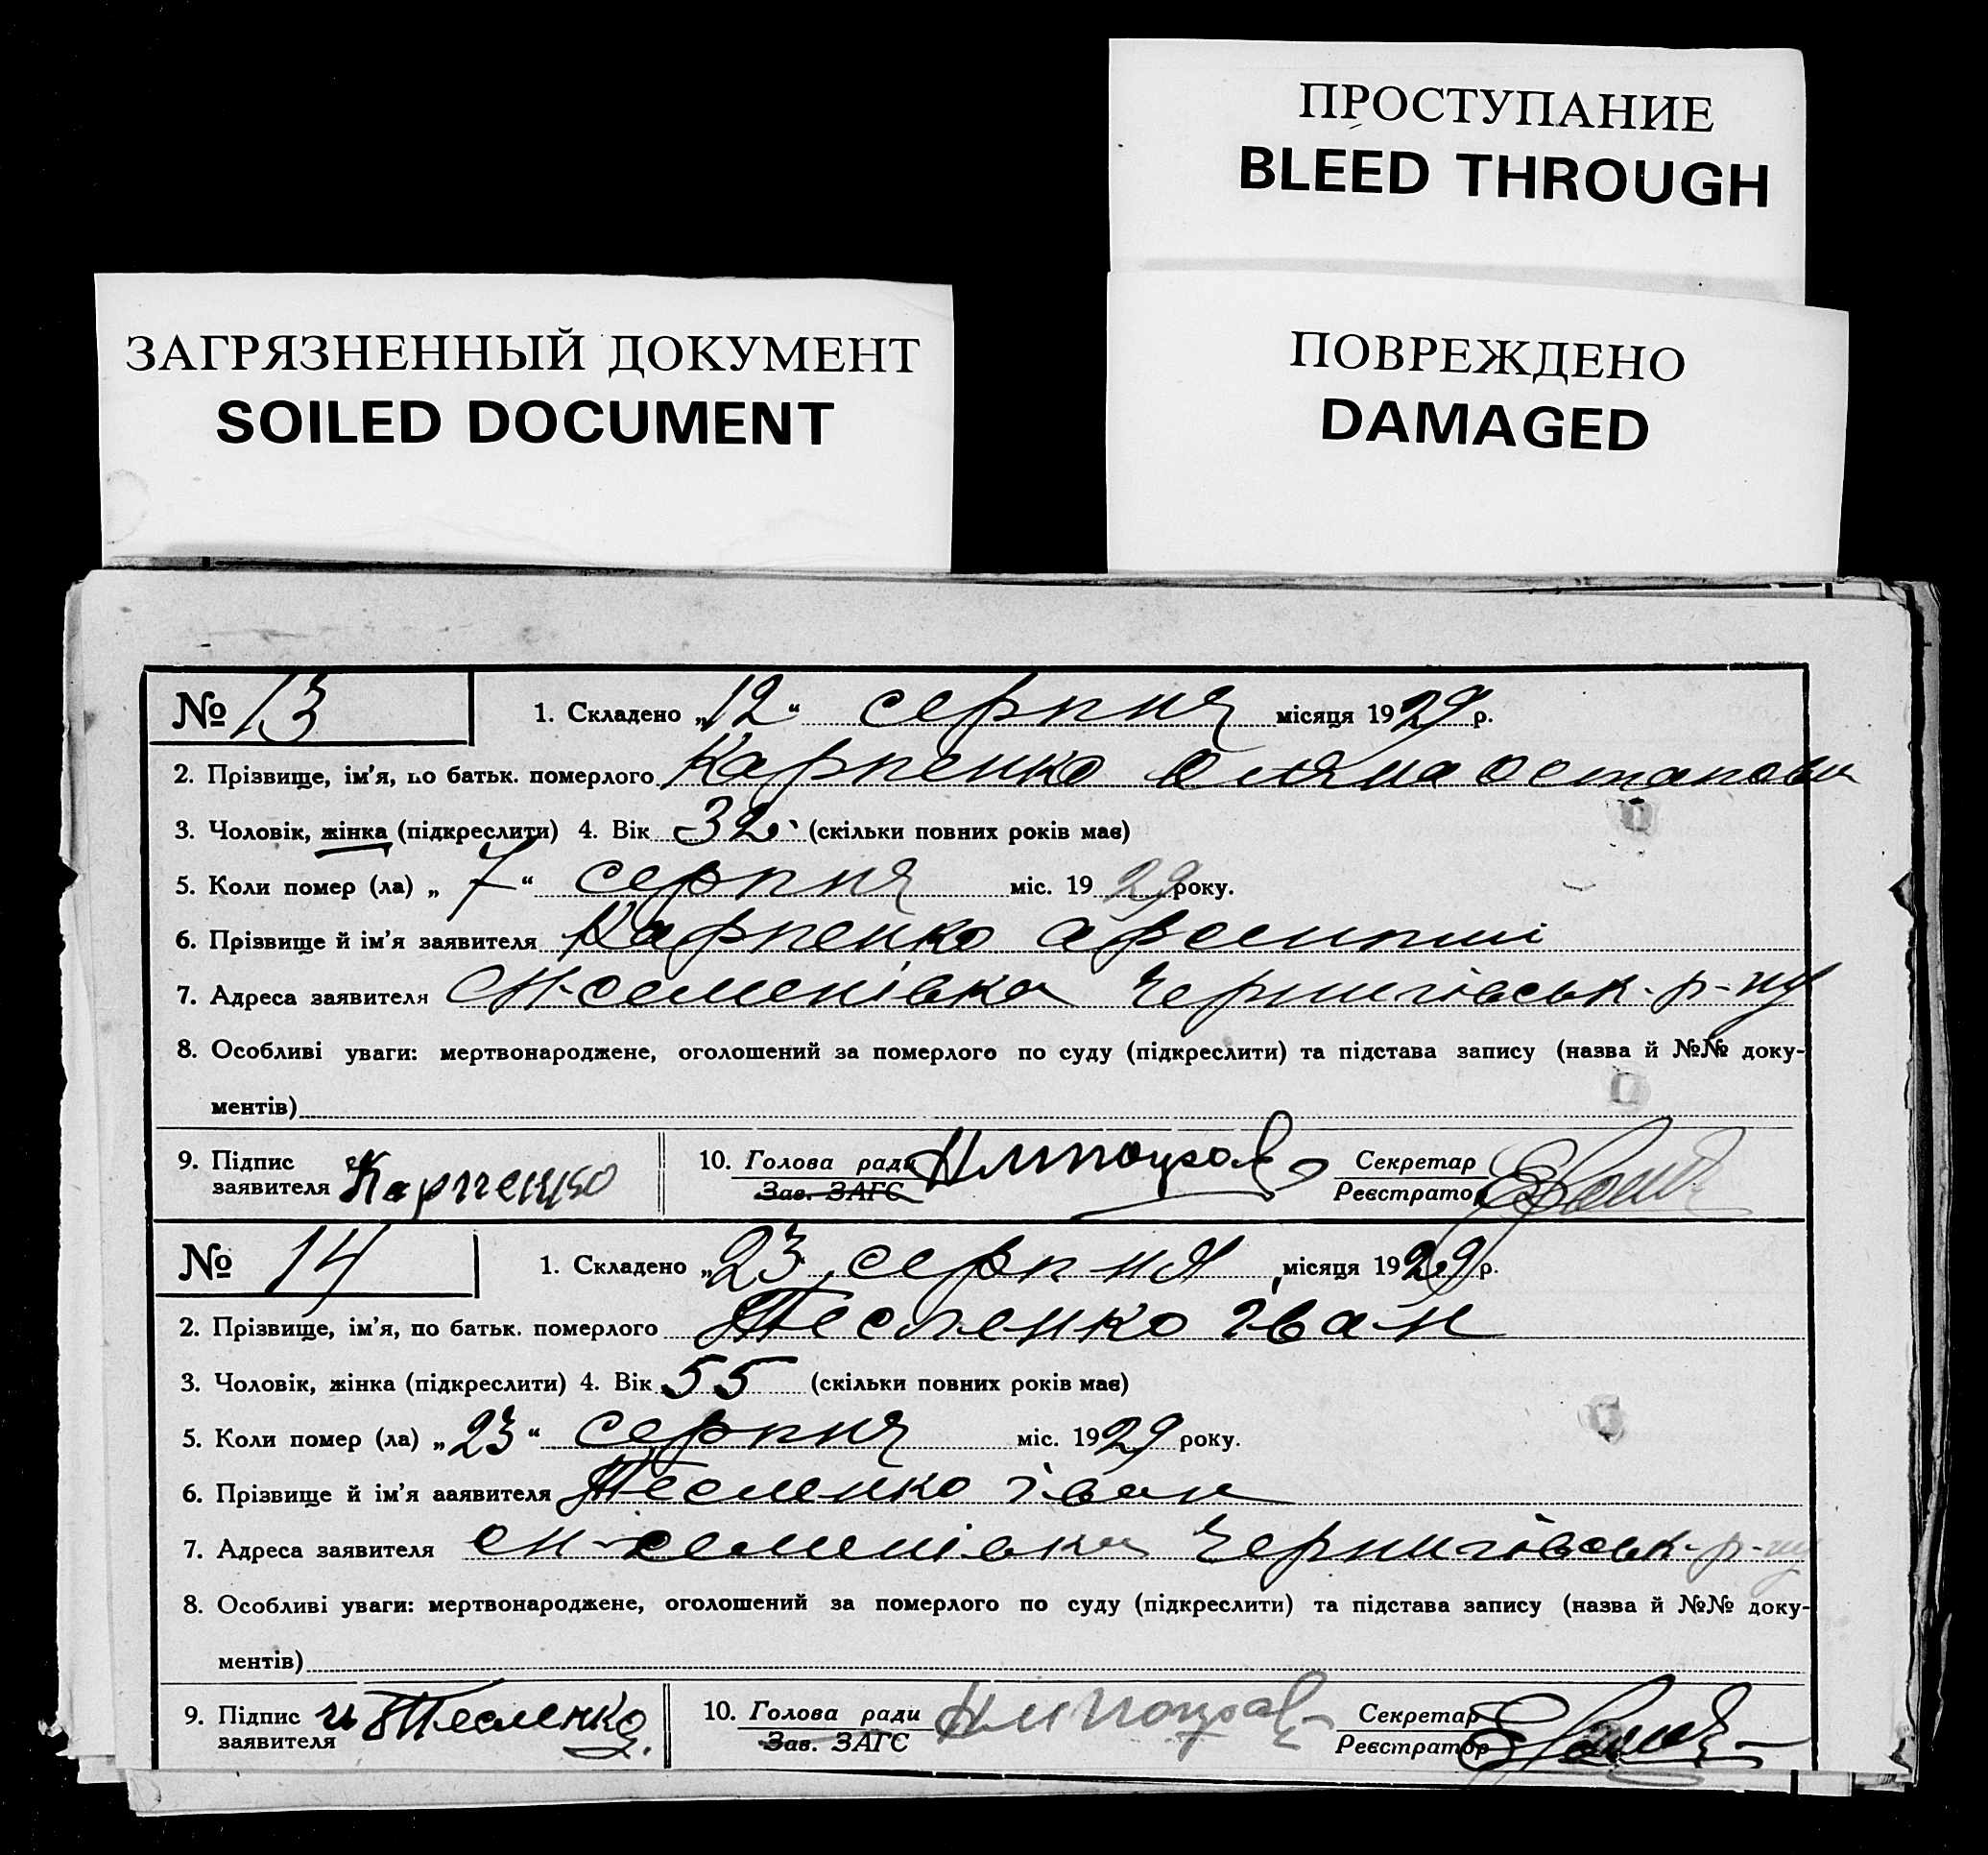 ПРОСТУПАНИЕ
BLEED THROUGH
ЗАГРЯЗНЕННЫЙ ДОКУМЕНТ
SOILED DOCUMENT
ПОВРЕЖДЕНО
DAMAGED
№ 13 1. Складено „12“ серпня місяця 1929 р.
2. Прізвище, ім'я, по батьк. померлого Карпенко Остапова
3. Чоловік, жінка (підкреслити) 4. Вік 32 (скільки повних років має)
5. Коли помер (ла) „7“ серпня міс. 1929 року.
6. Прізвище й ім'я заявителя Карпенко
7. Адреса заявителя Черниговськ. р-ну
8. Особливі уваги: мертвонароджене, оголошений за померлого по суду (підкреслити) та підстава запису (назва й №№ доку-
ментів)
9. Підпис заявителя Карпенко 10. Голова ради Зав. ЗАГС Секретар Реєстратор
№ 14 1. Складено „23 серпня місяця 1929 р.
2. Прізвище, ім'я, по батьк. померлого Тесленко Іван
3. Чоловік, жінка (підкреслити) 4. Вік 55 (скільки повних років має)
5. Коли помер (ла) „23“ серпня міс. 1929 року.
6. Прізвище й ім'я ааявителя Тесленко Іван
7. Адреса заявителя Черниговськ. р-ну
8. Особливі уваги: мертвонароджене, оголошений за померлого по суду (підкреслити) та підстава запису (назва й №№ доку-
ментів)
9. Підпис заявителя и Тесленко. 10. Голова ради Зав. ЗАГС Секретар Реєстратор